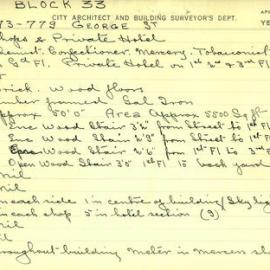 BLOCK 33
CITY ARCHITECT AND BUILDING SURVEYOR'S DEPT.
73-779 GEORGE ST
YE
hops & Private Hotel
Confectioner, Mercery, Tobacconist
Gd Fl. Private Hotel on 1st 2nd & 3rd Fl
rick. Wood floors
imber framed Gal Iron
pprox 50'0" Area Approx 5500 Sq ft
Enc Wood Stair 3'2" from Street to 1st Fl
Enc Wood Stair from Street to 1st Fl
Enc Wood Stair 1st Fl to 3rd Fl
Open Wood Stair 3'5" 1st Fl to back yard
Nil
Nil
in each side 1 in centre of building / Skylig
in each shop 5 in hotel section (9)
Nil
Nil
hroughout building Meter in Mercers sh